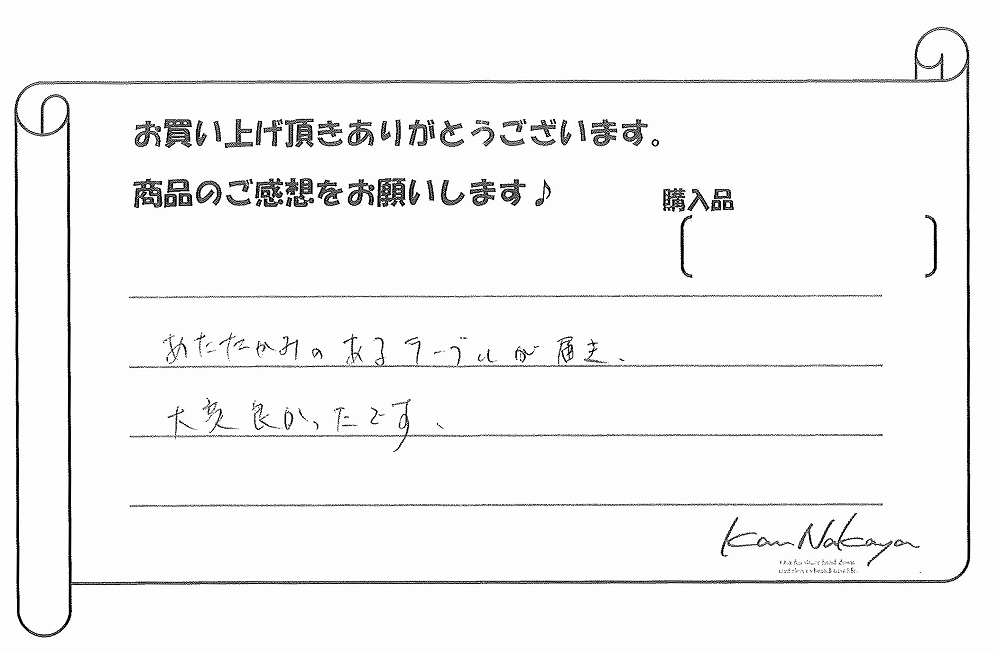 お買い上げ頂きありがとうございます。
商品のご感想をお願いします♪
購入品
あたたかみのあるテーブルが届き、
大変良かったです、
Kan Nakaya